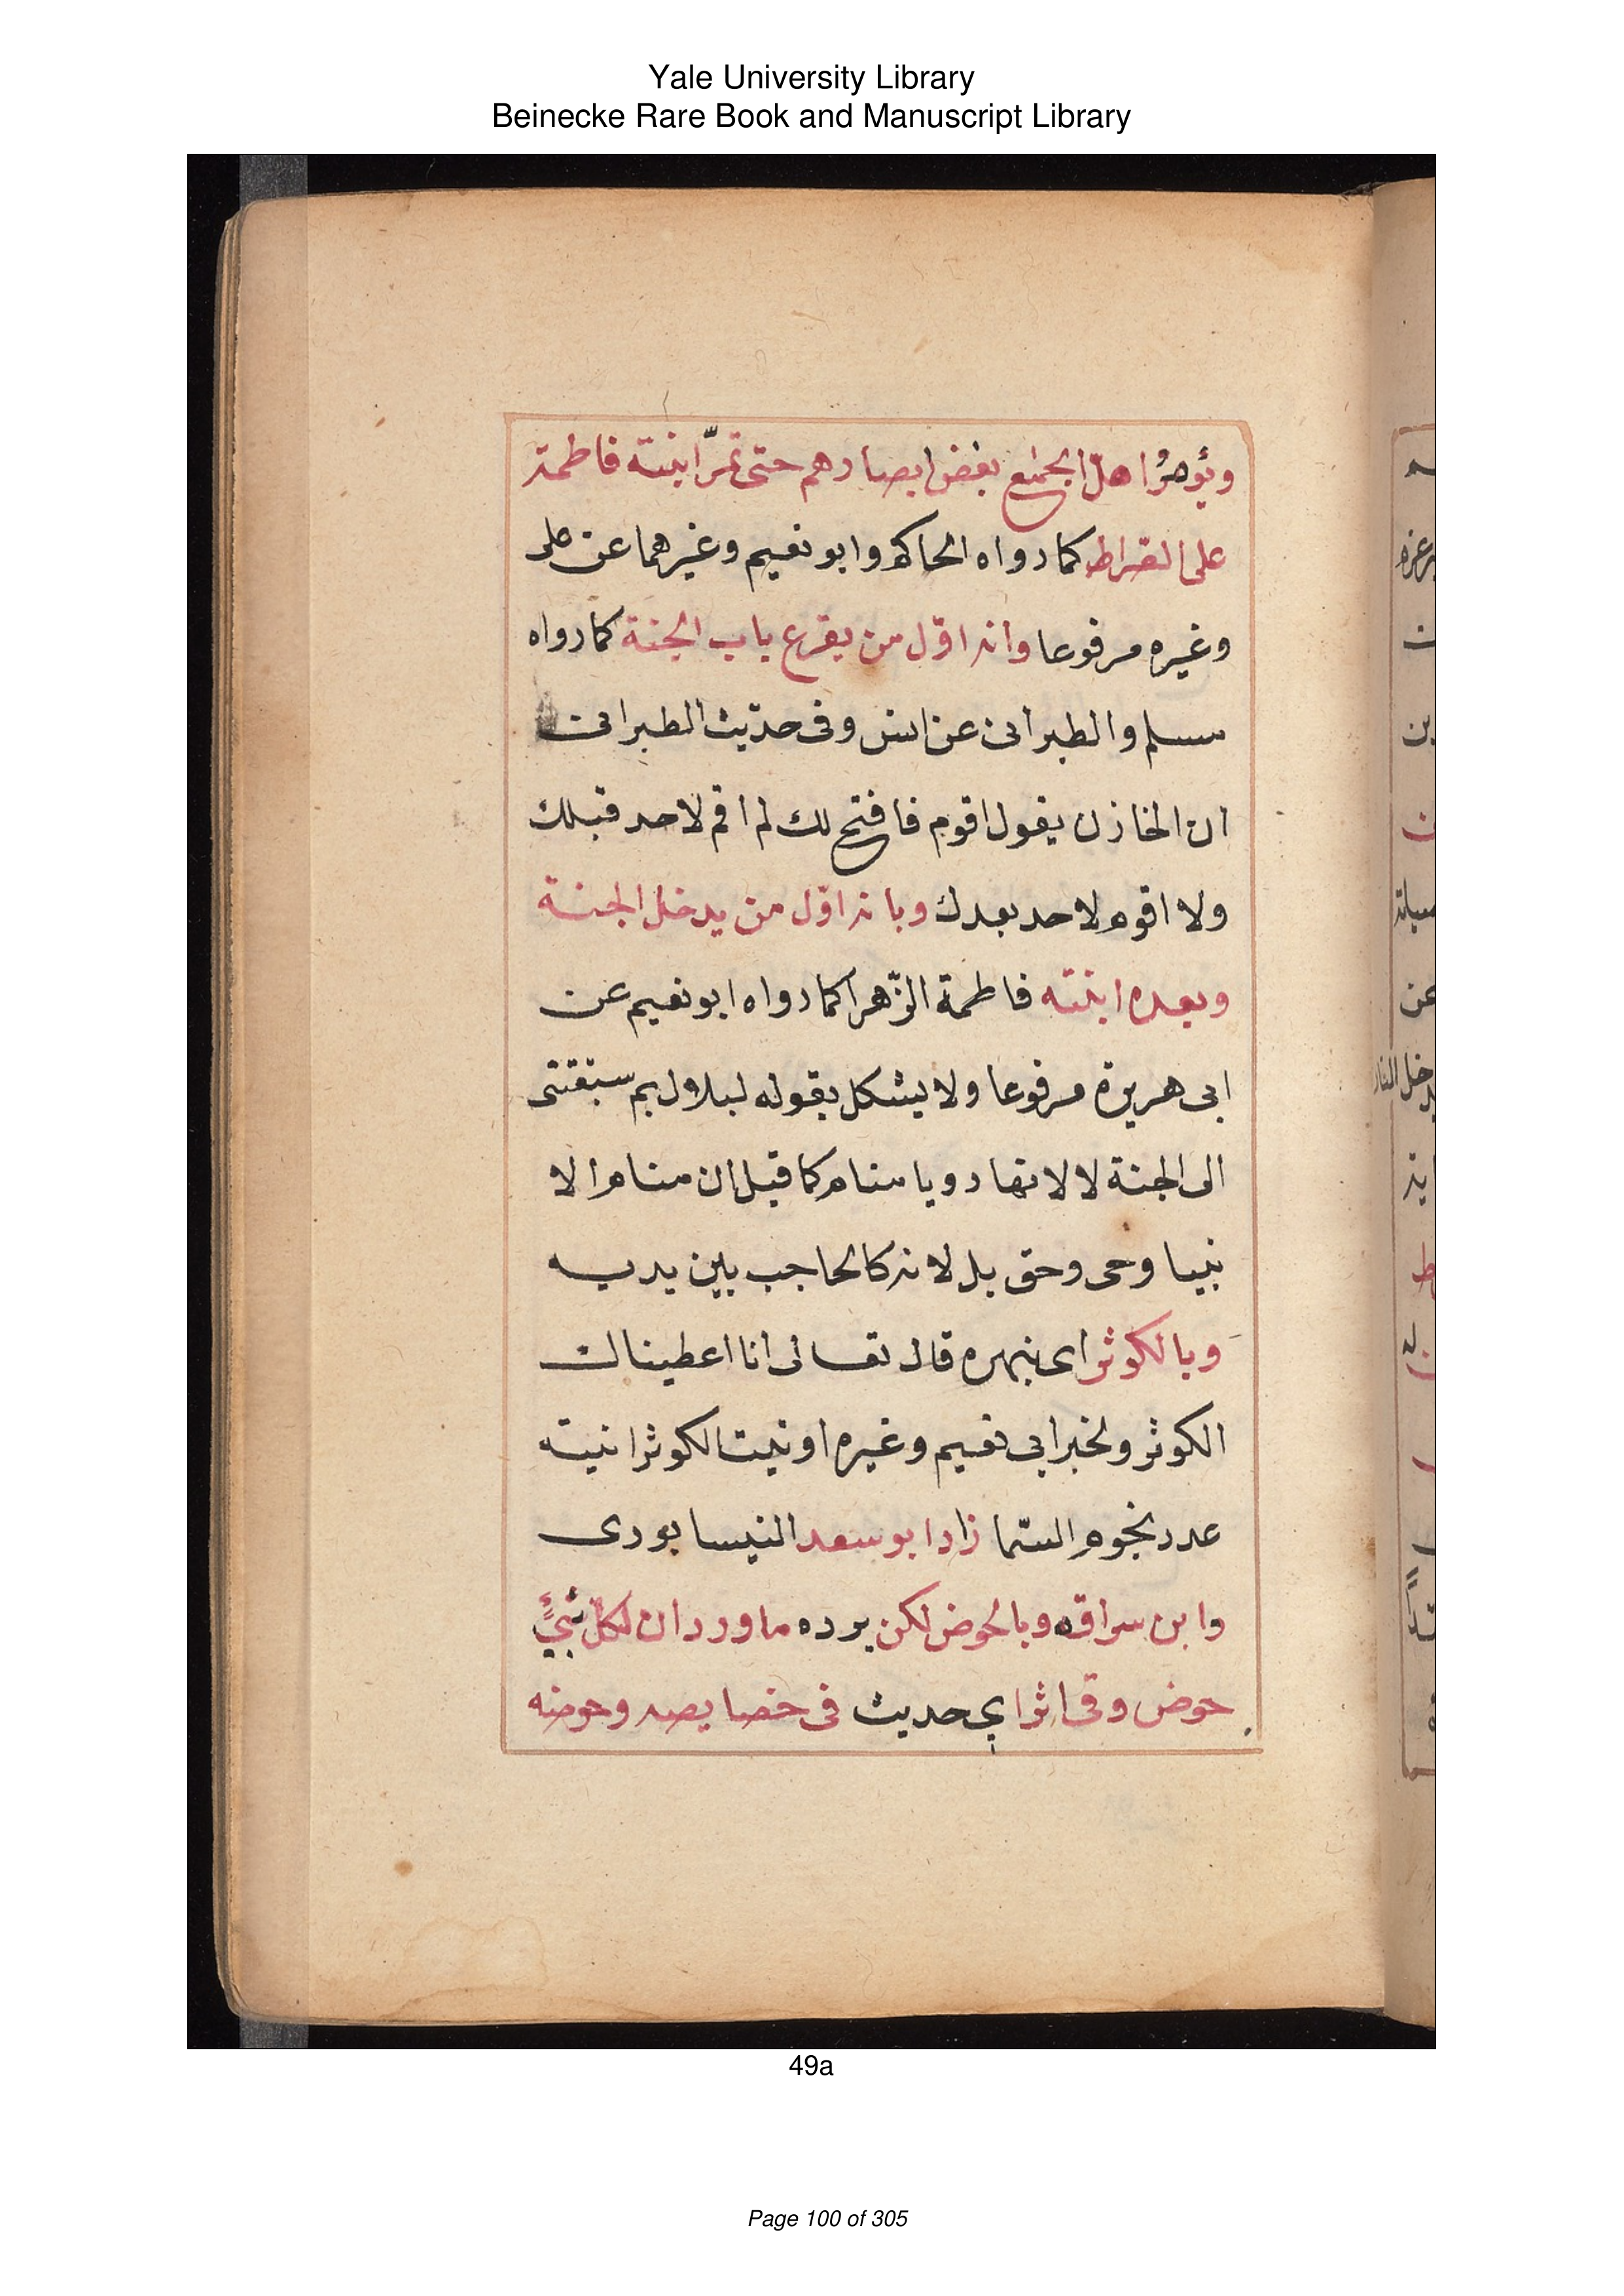 Yale University Library
Beinecke Rare Book and Manuscript Library
ويؤمرُ اهل الجمع بغض ابصارهم حتى تمرّ ابنته فاطمة
على الصراط كما رواه الحاكم وابو نعيم وغيرهما عن على
وغيره مرفوعا وانه اوّل من يقرع باب الجنة كما رواه
مسلم والطبرانى عن انس وفى حديث الطبرانى
ان الخازن يقول اقوم فافتح لك لم اقم لاحد قبلك
ولا اقوم لاحد بعدك وبانه اوّل من يدخل الجنة
وبعده ابنته فاطمة الزّهرا كما رواه ابو نعيم عن
ابى هريرة مرفوعا ولا يشكل بقوله لبلال بم سبقتنى
الى الجنة لا لانها رويا منام كما قيل ان منام الا
نبيا وحى وحق بل لانه كالحاجب بين يديه
وبالكوثر اى بنهره قال تعالى انا اعطيناك
الكوثر ولخبر ابى نعيم وغيره اوتيت الكوثر انيته
عدد نجوم السّما زاد ابو سعد النيسابورى
وابن سراقه وبالحوض لكن يرده ما ورد ان لكلّ نبيٍّ
حوض وفى اثر اي حديث فى خصايصه وحوضه
49a
Page 100 of 305